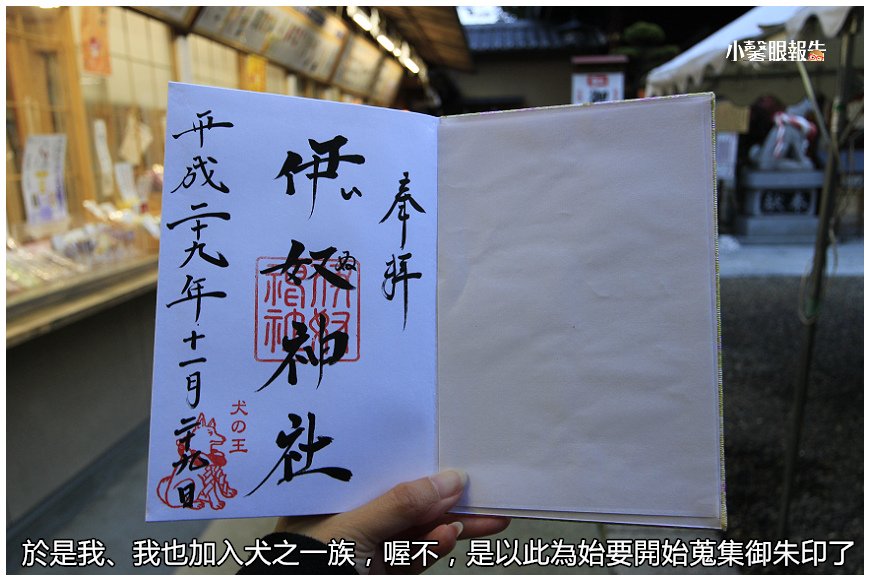 小馨眼報告
奉拝
伊奴神社
いぬ
平成二十九年十一月二十九日
犬の王
於是我、我也加入犬之一族，喔不，是以此為始要開始蒐集御朱印了